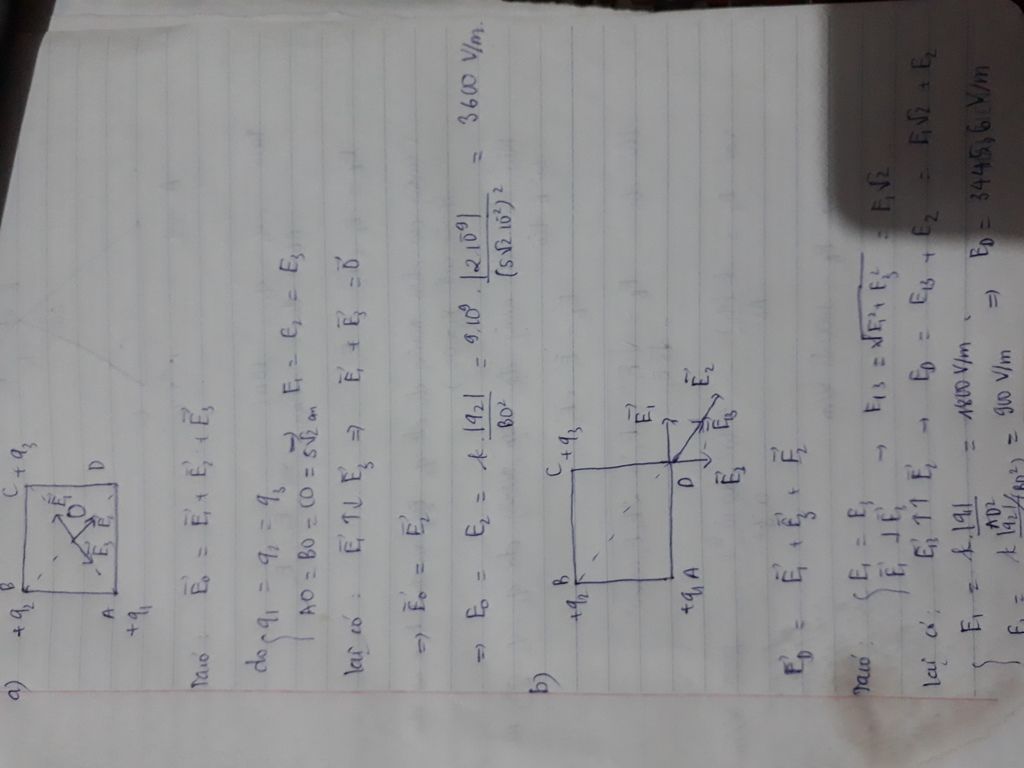 a)
+q₂ B C +q₃
O E⃗₁
E⃗₃ E⃗₂
A D
+q₁
Ta có : E⃗₀ = E⃗₁ + E⃗₂ + E⃗₃
do { q₁ = q₂ = q₃
AO = BO = CO = 5√2 m → E₁ = E₂ = E₃
lại có : E⃗₁ ↑↓ E⃗₃ ⇒ E⃗₁ + E⃗₃ = 0⃗
⇒ E⃗₀ = E⃗₂
⇒ E₀ = E₂ = k.|q₂|/BO² = 9.10⁹ . |2.10⁻⁹|/(5√2.10⁻²)² = 3600 V/m.
b)
+q₂ B C +q₃
+q₁ A D E⃗₁
E⃗₃ E⃗₁₃ E⃗₂
E⃗_D = E⃗₁ + E⃗₃ + E⃗₂
Ta có : { E₁ = E₃
E⃗₁ ⊥ E⃗₃ → E₁₃ = √(E₁² + E₃²) = E₁√2
lại có : E⃗₁₃ ↑↑ E⃗₂ → E_D = E₁₃ + E₂ = E₁√2 + E₂
{ E₁ = k.|q₁|/AD² = 1800 V/m.
E₂ = k |q₂|/(BD²) = 900 V/m ⇒ E_D = 3445,6 V/m